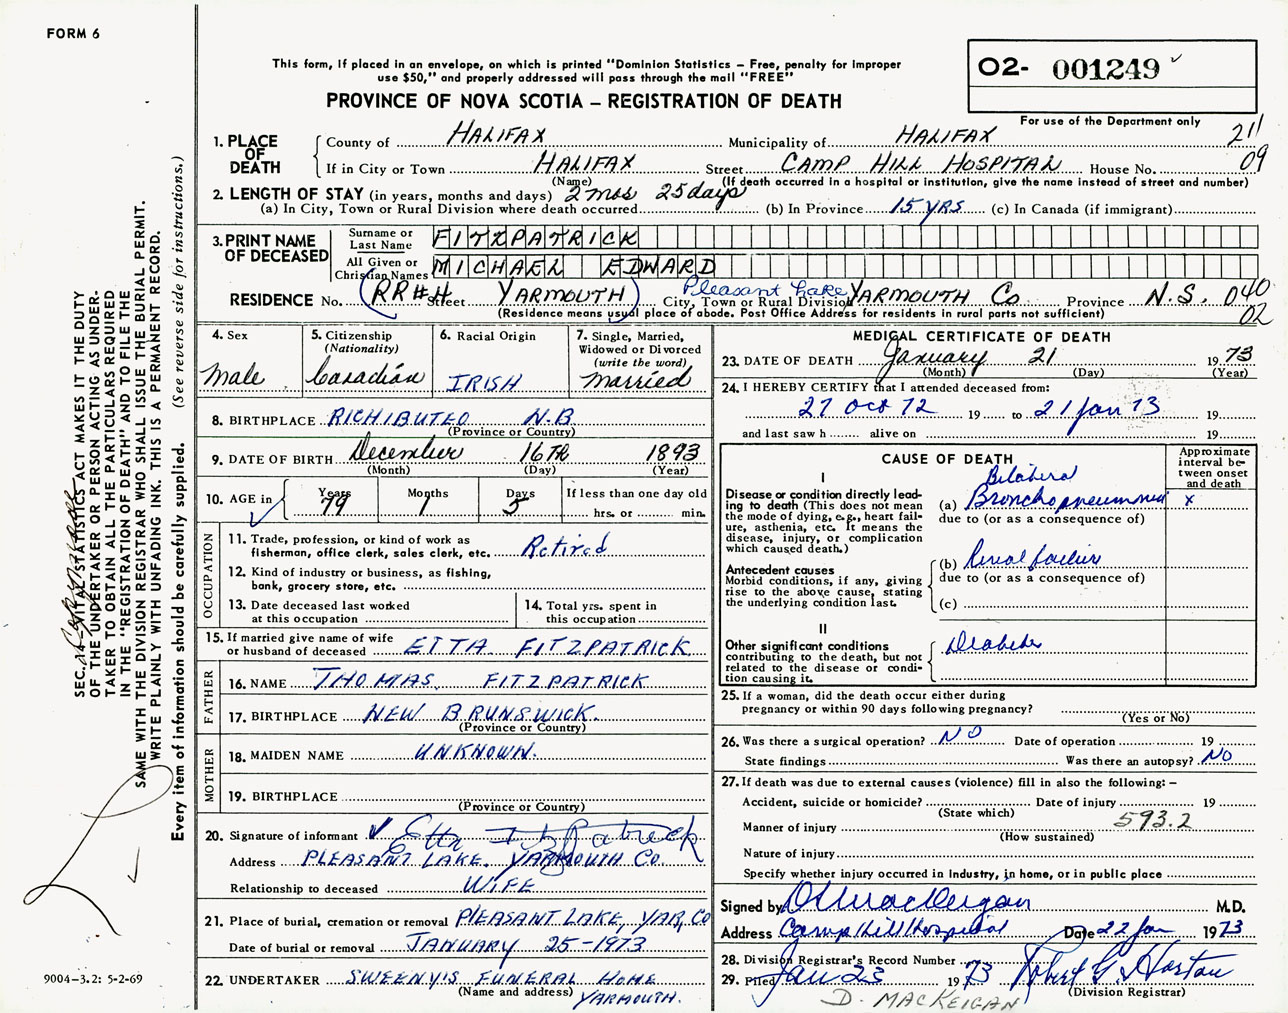 FORM 6
This form, if placed in an envelope, on which is printed "Dominion Statistics – Free, penalty for improper
use $50," and properly addressed will pass through the mail "FREE"
PROVINCE OF NOVA SCOTIA – REGISTRATION OF DEATH
O2- 001249
For use of the Department only
211
09
1. PLACE OF DEATH
County of HALIFAX Municipality of HALIFAX
If in City or Town HALIFAX Street CAMP HILL HOSPITAL House No.
(Name) (If death occurred in a hospital or institution, give the name instead of street and number)
2. LENGTH OF STAY (in years, months and days) 2 mos 25 days
(a) In City, Town or Rural Division where death occurred (b) In Province 15 YRS (c) In Canada (if immigrant)
3. PRINT NAME OF DECEASED
Surname or Last Name FITZPATRICK
All Given or Christian Names MICHAEL EDWARD
RESIDENCE No. (RR#4 Street YARMOUTH) Pleasant Lake City, Town or Rural Division YARMOUTH Co Province N.S. 040
02
(Residence means usual place of abode. Post Office Address for residents in rural parts not sufficient)
4. Sex
Male
5. Citizenship
(Nationality)
Canadian
6. Racial Origin
IRISH
7. Single, Married,
Widowed or Divorced
(write the word)
Married
8. BIRTHPLACE RICHIBUTEO N.B
(Province or Country)
9. DATE OF BIRTH December 16TH 1893
(Month) (Day) (Year)
10. AGE in
Years 79
Months 1
Days 5
If less than one day old
hrs. or min.
OCCUPATION
11. Trade, profession, or kind of work as
fisherman, office clerk, sales clerk, etc. Retired
12. Kind of industry or business, as fishing,
bank, grocery store, etc.
13. Date deceased last worked
at this occupation
14. Total yrs. spent in
this occupation
15. If married give name of wife
or husband of deceased ETTA FITZPATRICK
FATHER
16. NAME THOMAS FITZPATRICK
17. BIRTHPLACE NEW BRUNSWICK.
(Province or Country)
MOTHER
18. MAIDEN NAME UNKNOWN.
19. BIRTHPLACE
(Province or Country)
20. Signature of informant Etta Fitzpatrick
Address PLEASANT LAKE, YARMOUTH CO
Relationship to deceased WIFE
21. Place of burial, cremation or removal PLEASANT LAKE, YAR, CO
Date of burial or removal JANUARY 25-1973
22. UNDERTAKER SWEENY'S FUNERAL HOME
(Name and address) YARMOUTH.
MEDICAL CERTIFICATE OF DEATH
23. DATE OF DEATH January 21 1973
(Month) (Day) (Year)
24. I HEREBY CERTIFY that I attended deceased from:
27 Oct 72 19 to 21 Jan 73 19
and last saw h alive on 19
CAUSE OF DEATH
Approximate
interval be-
tween onset
and death
I
Disease or condition directly lead-
ing to death (This does not mean
the mode of dying, e.g., heart fail-
ure, asthenia, etc. It means the
disease, injury, or complication
which caused death.)
Bilateral
(a) Bronchopneumonia x
due to (or as a consequence of)
Antecedent causes
Morbid conditions, if any, giving
rise to the above cause, stating
the underlying condition last.
(b) Renal failure
due to (or as a consequence of)
(c)
II
Other significant conditions
contributing to the death, but not
related to the disease or condi-
tion causing it.
Diabetes
25. If a woman, did the death occur either during
pregnancy or within 90 days following pregnancy?
(Yes or No)
26. Was there a surgical operation? NO Date of operation 19
State findings Was there an autopsy? NO
27. If death was due to external causes (violence) fill in also the following: –
Accident, suicide or homicide? Date of injury 19
(State which)
593.2
Manner of injury
(How sustained)
Nature of injury
Specify whether injury occurred in industry, in home, or in public place
Signed by D MacKeigan M.D.
Address Camp Hill Hospital Date 22 Jan 1973
28. Division Registrar's Record Number
29. Filed Jan 23 1973 Robert G. Horton
(Division Registrar)
D. MACKEIGAN
VITAL STATISTICS ACT MAKES IT THE DUTY
OF THE UNDERTAKER OR PERSON ACTING AS UNDER-
TAKER TO OBTAIN ALL THE PARTICULARS REQUIRED
IN THE "REGISTRATION OF DEATH" AND TO FILE THE
SAME WITH THE DIVISION REGISTRAR WHO SHALL ISSUE THE BURIAL PERMIT.
WRITE PLAINLY WITH UNFADING INK. THIS IS A PERMANENT RECORD.
Every item of information should be carefully supplied. (See reverse side for instructions.)
9004–3.2: 5-2-69